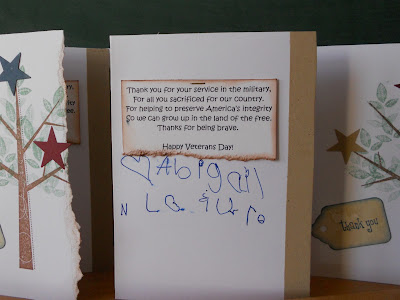 Thank you for your service in the military,
For all you sacrificed for our country.
For helping to preserve America's integrity
So we can grow up in the land of the free.
Thanks for being brave.
Happy Veterans Day!
Abigail
thank you